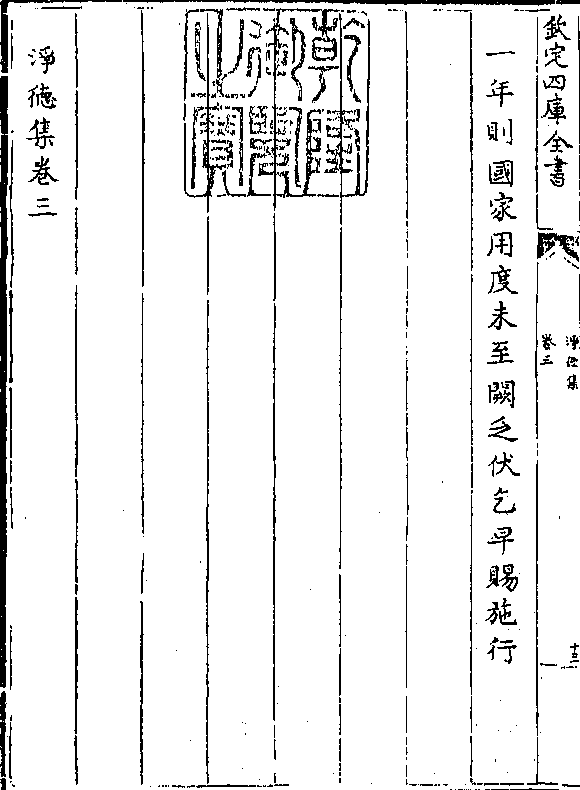 欽定四庫全書
淨德集
卷三
十三
一年則國家用度未至闕乏伏乞早賜施行
乾隆
御覽
之寶
淨德集卷三